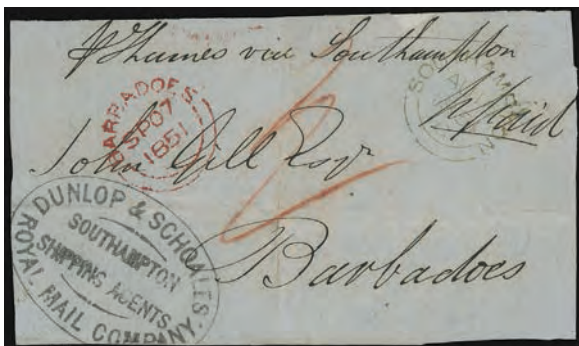 p Thames via Southampton
SOUTHAMPTON
AU
Paid
BARBADOES
SP 07
1851
John Gill Esqr
Barbadoes
DUNLOP & SCHOALES.
SOUTHAMPTON
SHIPPING AGENTS
ROYAL MAIL COMPANY